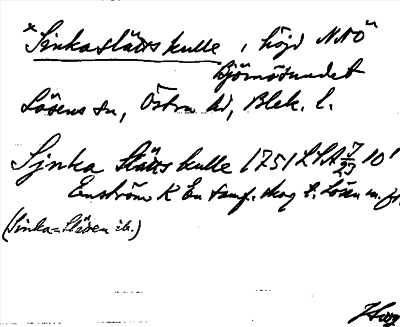 *Sinkaslätts kulle, höjd NNÖ
Björnösundet
Lösens sn, Östra hd, Blek. l.
Sjnka Slätts kulle 1751 LSA 7/23 10'
Enström K En samf. skog t. Lösen m. fl.
(Sinka=Släten ib.)